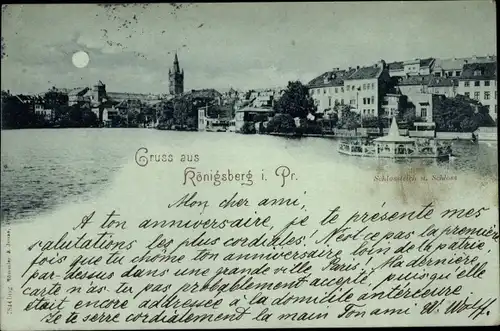 Gruss aus
Königsberg i. Pr.
Schlossteich u. Schloss
Mon cher ami,
A ton anniversaire, je te présente mes
salutations les plus cordiales! N'est-ce pas la première
fois que tu chôme ton anniversaire loin de ta patrie,
par-dessus dans une grande ville Paris. Ma dernière
carte n'as-tu pas probablement accepté, puisqu'elle
était encore adressée à ta domicile antérieure.
Je te serre cordialement la main Ton ami W. Wolff.